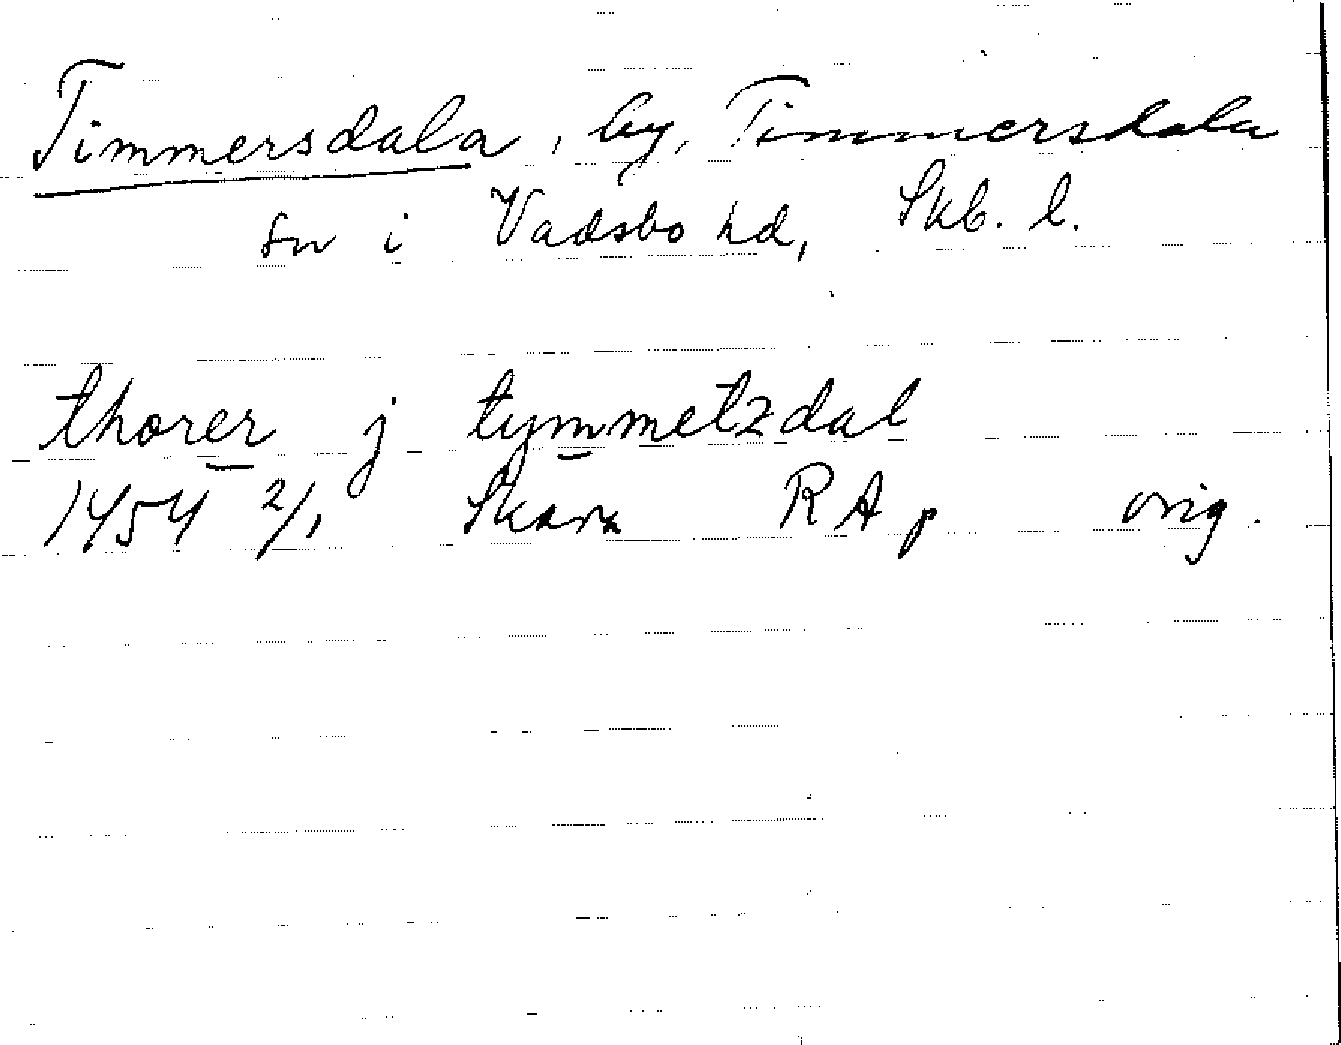 Timmersdala, by, Timmersdala
sn i Vadsbo hd, Skb. l.
thorer j tymmetzdal
1454 2/1 Skara RAp orig.